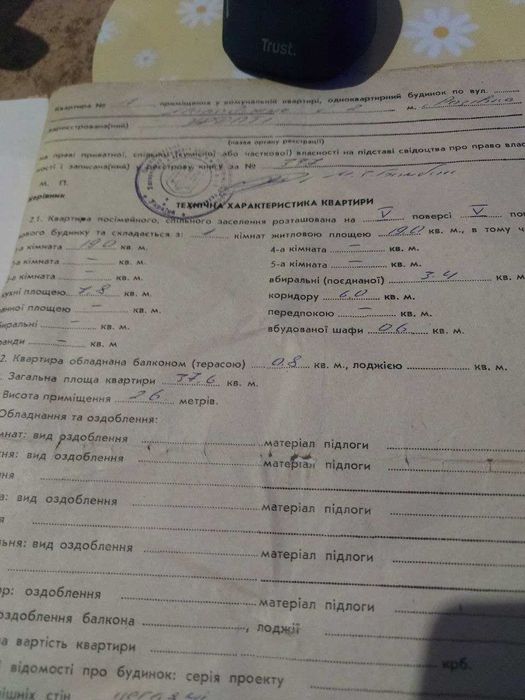 Trust.
Квартира № приміщення у комунальній квартирі, одноквартирний будинок по вул.
м.
зареєстрована(ний)
(назва органу реєстрації)
на праві приватної, спільної (сумісної або часткової) власності на підставі свідоцтва про право влас
ності і записана(ий) у реєстрову книгу за №
М. П.
керівник
ТЕХНІЧНА ХАРАКТЕРИСТИКА КВАРТИРИ
2.1. Квартира посімейного, спільного заселення розташована на V поверсі V пов
ового будинку та складається з: 1 кімнат житловою площею 19.0 кв. м., в тому ч
-а кімната 19.0 кв. м.
4-а кімната – кв. м.
-а кімната – кв. м.
5-а кімната – кв. м.
-я кімната – кв. м.
вбиральні (поєднаної) 3.4 кв. м
кухні площею 7.8 кв. м.
коридору 6.0 кв. м.
ванної площею – кв. м.
передпокою – кв. м.
биральні – кв. м.
вбудованої шафи 0.6 кв. м.
ранди – кв. м
2. Квартира обладнана балконом (терасою) 0.8 кв. м., лоджією кв. м.
Загальна площа квартири 37.6 кв. м.
Висота приміщення 2.6 метрів.
Обладнання та оздоблення:
мнат: вид оздоблення матеріал підлоги
хня: вид оздоблення матеріал підлоги
ння
а: вид оздоблення матеріал підлоги
я
льня: вид оздоблення матеріал підлоги
ор: оздоблення матеріал підлоги
оздоблення балкона , лоджії
на вартість квартири крб.
і відомості про будинок: серія проекту
нішніх стін цегляні